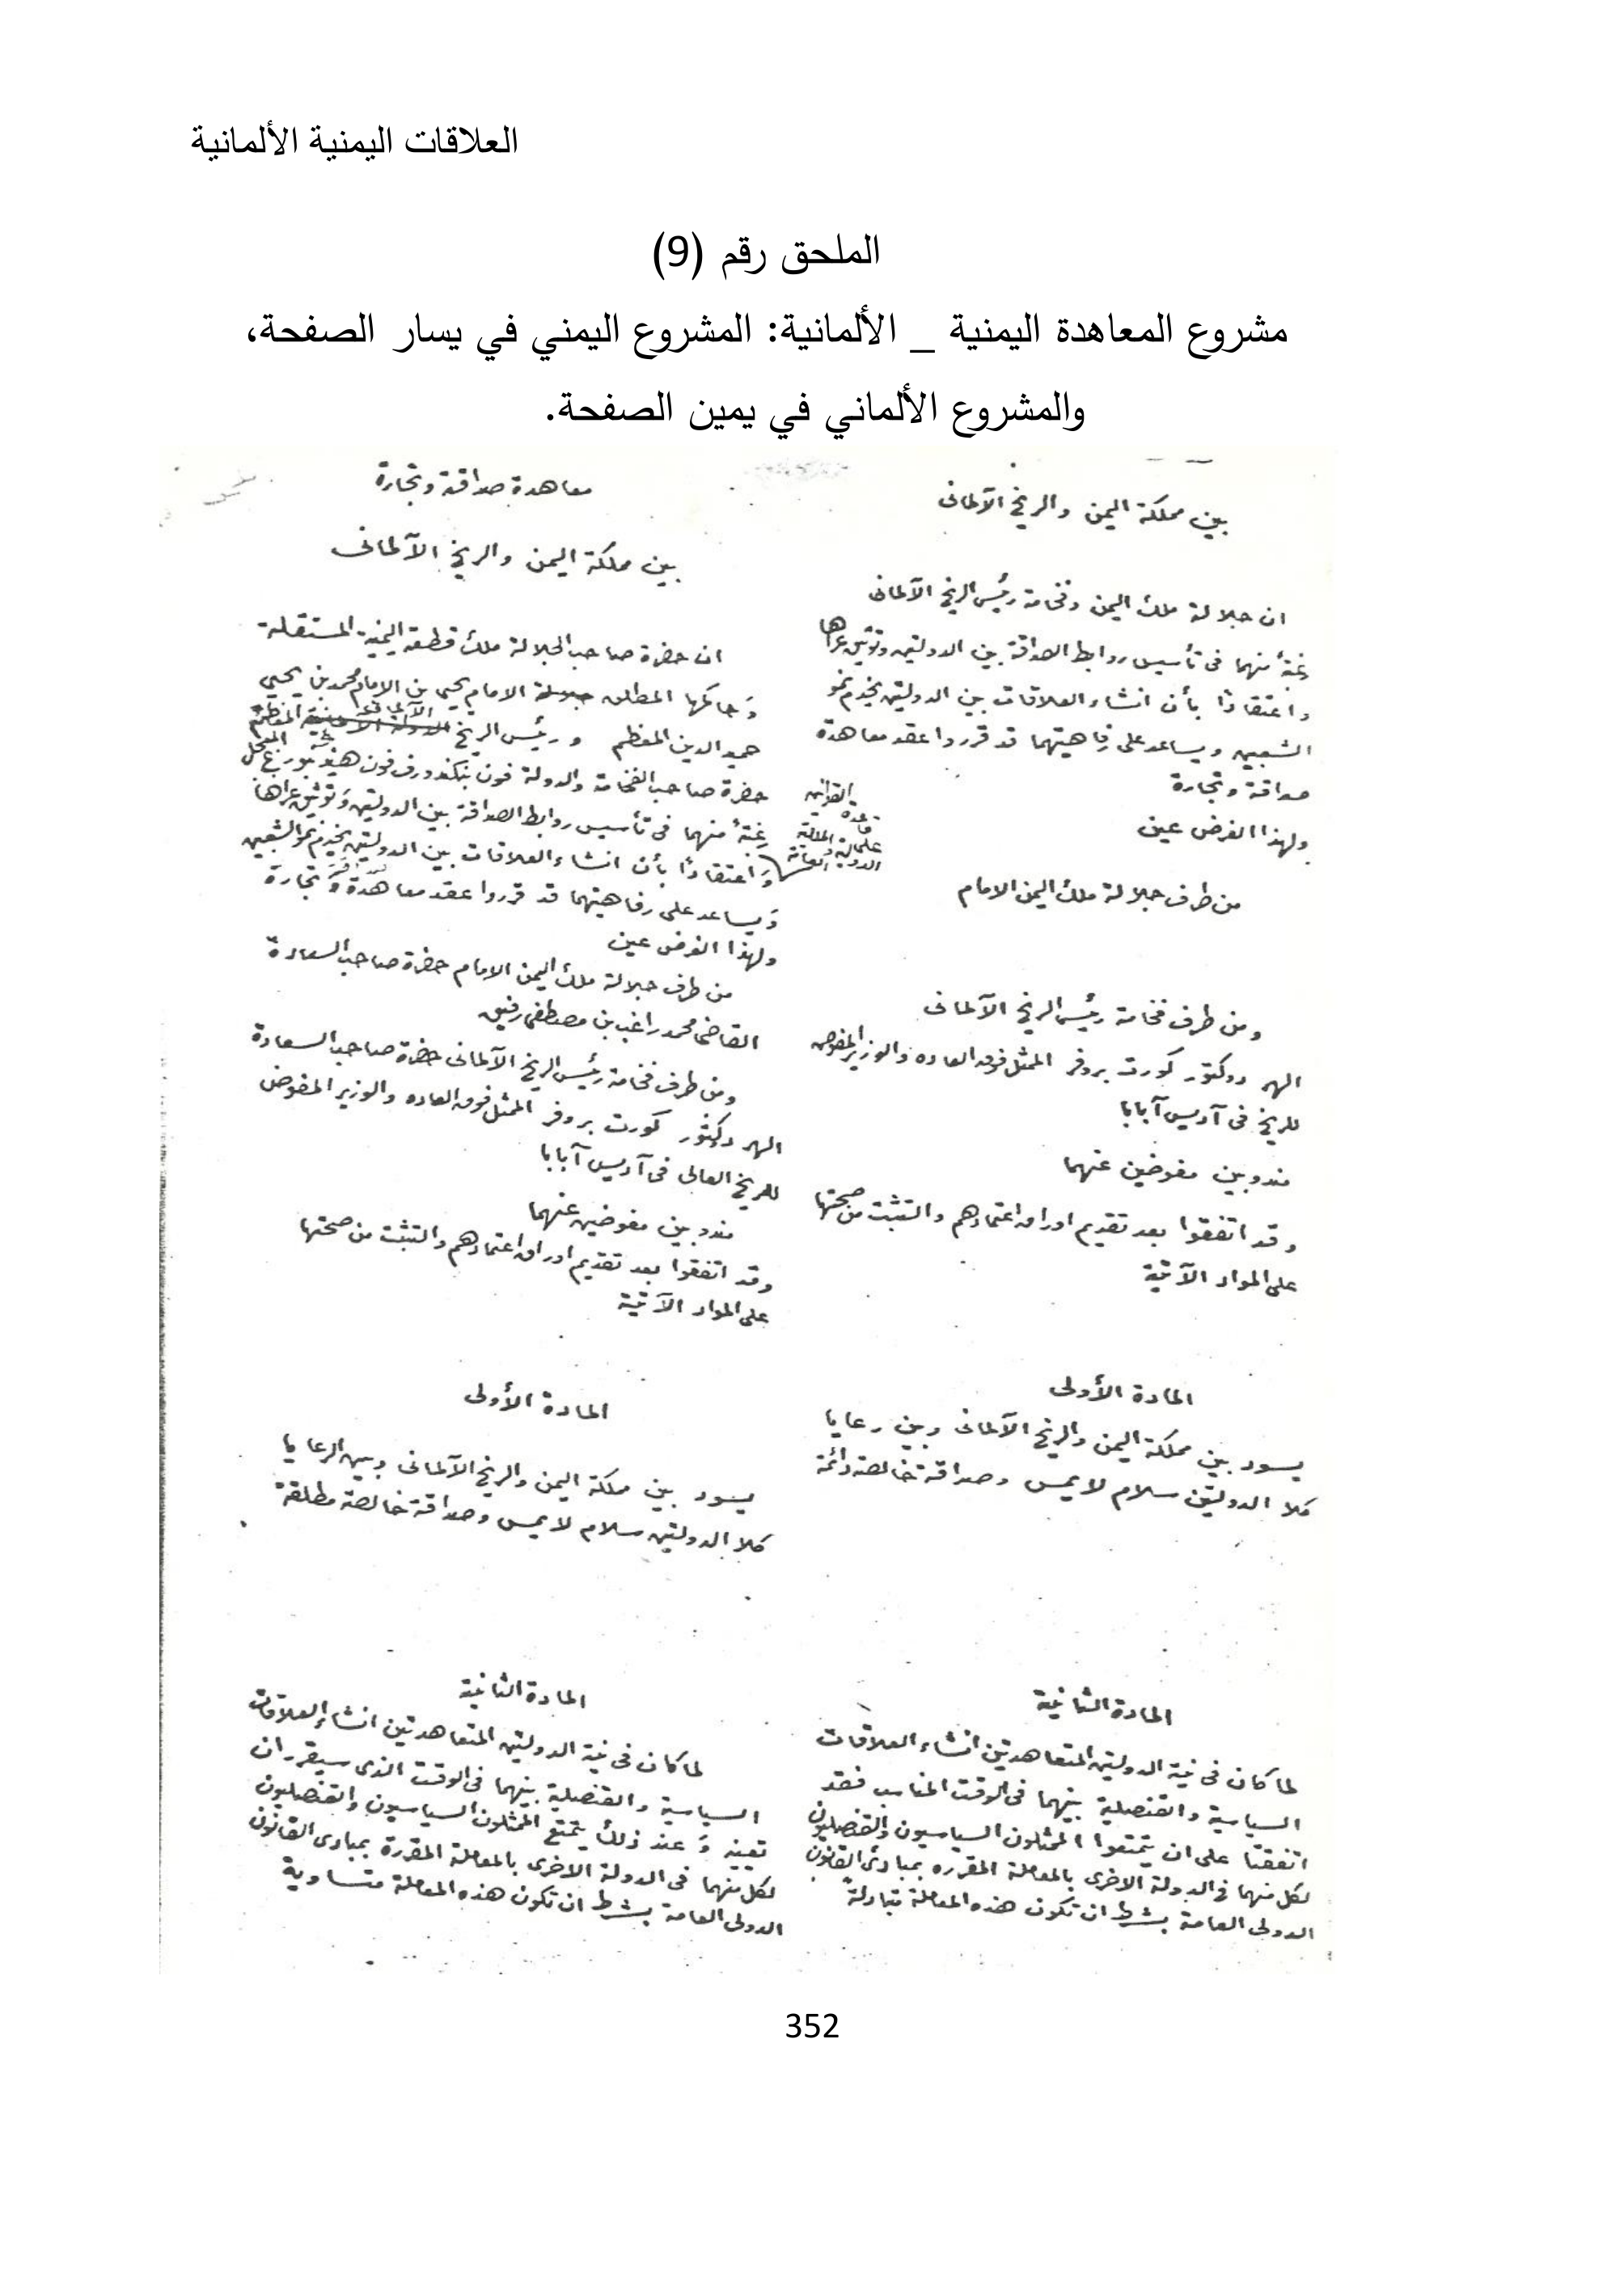 العلاقات اليمنية الألمانية
الملحق رقم (9)
مشروع المعاهدة اليمنية _ الألمانية: المشروع اليمني في يسار الصفحة،
والمشروع الألماني في يمين الصفحة.
بين مملكة اليمن والريخ الآلمانى
ان جلالة ملك اليمن وفخامة رئيس الريخ الآلمانى
رغبةً منهما فى تأسيس روابط الصداقة بين الدولتين وتوثيق عراها
واعتقادًا بأن انشاء العلاقات بين الدولتين يخدم نمو
الشعبين ويساعد على رفاهيتهما قد قرروا عقد معاهدة
صداقة وتجارة
ولهذا الغرض عين
من طرف جلالة ملك اليمن الامام
ومن طرف فخامة رئيس الريخ الآلمانى
الهر دوكتور كورت بروفر الممثل فوق العاده والوزير المفوض
للريخ فى آديس آبابا
مندوبين مفوضين عنهما
وقد اتفقوا بعد تقديم اوراق اعتمادهم والتثبت من صحتها
على المواد الآتية
المادة الأولى
يسود بين مملكة اليمن والريخ الآلمانى وبين رعايا
كلا الدولتين سلام لا يمس وصداقة خالصة دائمة
المادة الثانية
لما كان فى نية الدولتين المتعاهدتين انشاء العلاقات
السياسية والقنصلية بينهما فى الوقت المناسب فقد
اتفقتا على ان يتمتعوا الممثلون السياسيون والقنصليون
لكل منهما فى الدولة الاخرى بالمعاملة المقرره بمبادئ القانون
الدولى العامة بشرط ان تكون هذه المعاملة متبادلةً
معاهدة صداقة وتجارة
بين مملكة اليمن والريخ الآلمانى
ان حضرة صاحب الجلالة ملك قطعة اليمنية المستقلة
وَحاكمها المطلق جلالة الامام يحيى بن الامام محمد بن يحيى
حميد الدين المعظم ورئيس الريخ الآلمانى المعظم
حضرة صاحب الفخامة والدولة فون بنكندورف فون هيندنبورغ المبجل
رغبةً منهما فى تأسيس روابط الصداقة بين الدولتين وَتوثيق عراها
وَاعتقادًا بأن انشاء العلاقات بين الدولتين يخدم نمو الشعبين
وَيساعد على رفاهيتهما قد قرروا عقد معاهدة وَتجارة
القوانين
قاعدة
ولهذا الغرض عين
من طرف جلالة ملك اليمن الامام حضرة صاحب السعادة
القاضى محمد راغب بن مصطفى رفيق
ومن طرف فخامة رئيس الريخ الآلمانى حضرة صاحب السعادة
الهر دكتور كورت بروفر الممثل فوق العاده والوزير المفوض
للريخ العالى فى آديس آبابا
مندوبين مفوضين عنهما
وقد اتفقوا بعد تقديم اوراق اعتمادهم والتثبت من صحتها
على المواد الآتية
المادة الأولى
يسود بين مملكة اليمن والريخ الآلمانى وبين الرعايا
كلا الدولتين سلام لا يمس وصداقة خالصة مطلقة
المادة الثانية
لما كان فى نية الدولتين المتعاهدتين انشاء العلاقات
السياسية والقنصلية بينهما فى الوقت الذى سيقرران
تعيينه وَعند ذلك يتمتع الممثلون السياسيون والقنصليون
لكل منهما فى الدولة الاخرى بالمعاملة المقررة بمبادى القانون
الدولى العامة بشرط ان تكون هذه المعاملة متساوية
352